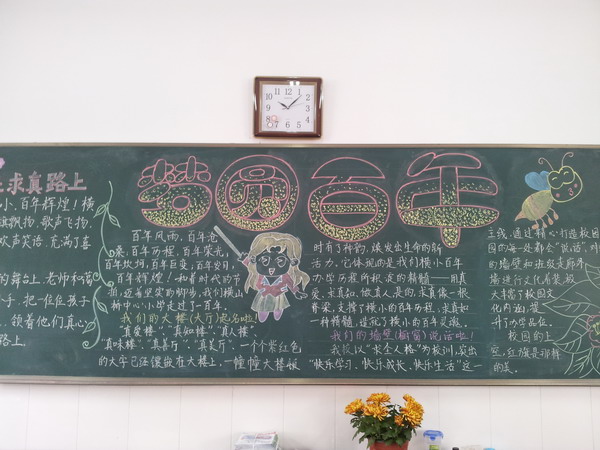 求真路上
小,百年辉煌!横
旗飘扬,歌声飞扬,
欢声笑语,充满了喜
的舞台上,老师和
小手,把一位位孩子
领着他们真心,
路上。
梦圆百年
百年风雨,百年沧
桑,百年历程,百年荣光,
百年巨变,百年岁月,
百年辉煌!和着时代的节
拍,迈着坚实的步履,我们横小
走过了百年。
我们的大楼(大厅)起名啦!
"真爱楼"、"真知楼"、"真人楼"、
"真味楼"、"真善厅"、"真美厅",一个个紫红色
的大字已经镶嵌在大楼上,一幢幢大楼被
时有了神韵,焕发出生命的新
活力,它体现的是我们横小百年
办学历程所积淀的精髓——用真
爱,求真知,做真人是的,求真像一根
脊梁,支撑了横小的百年历程,求真如
一种精髓,
我们的墙壁(橱窗)说话啦!
我校以"求全人格"为校训,突出
"快乐学习、快乐成长、快乐生活"这一
主线,通过精心打造校园
园的每一处都会"说话",对
的墙壁和班级走廊环
境进行文化布装,
大丰富了校园文
化内涵,提
升了办学品位。
校园的上
空,红旗是那样
的美。
12 1 2 3 4 5 6 7 8 9 10 11